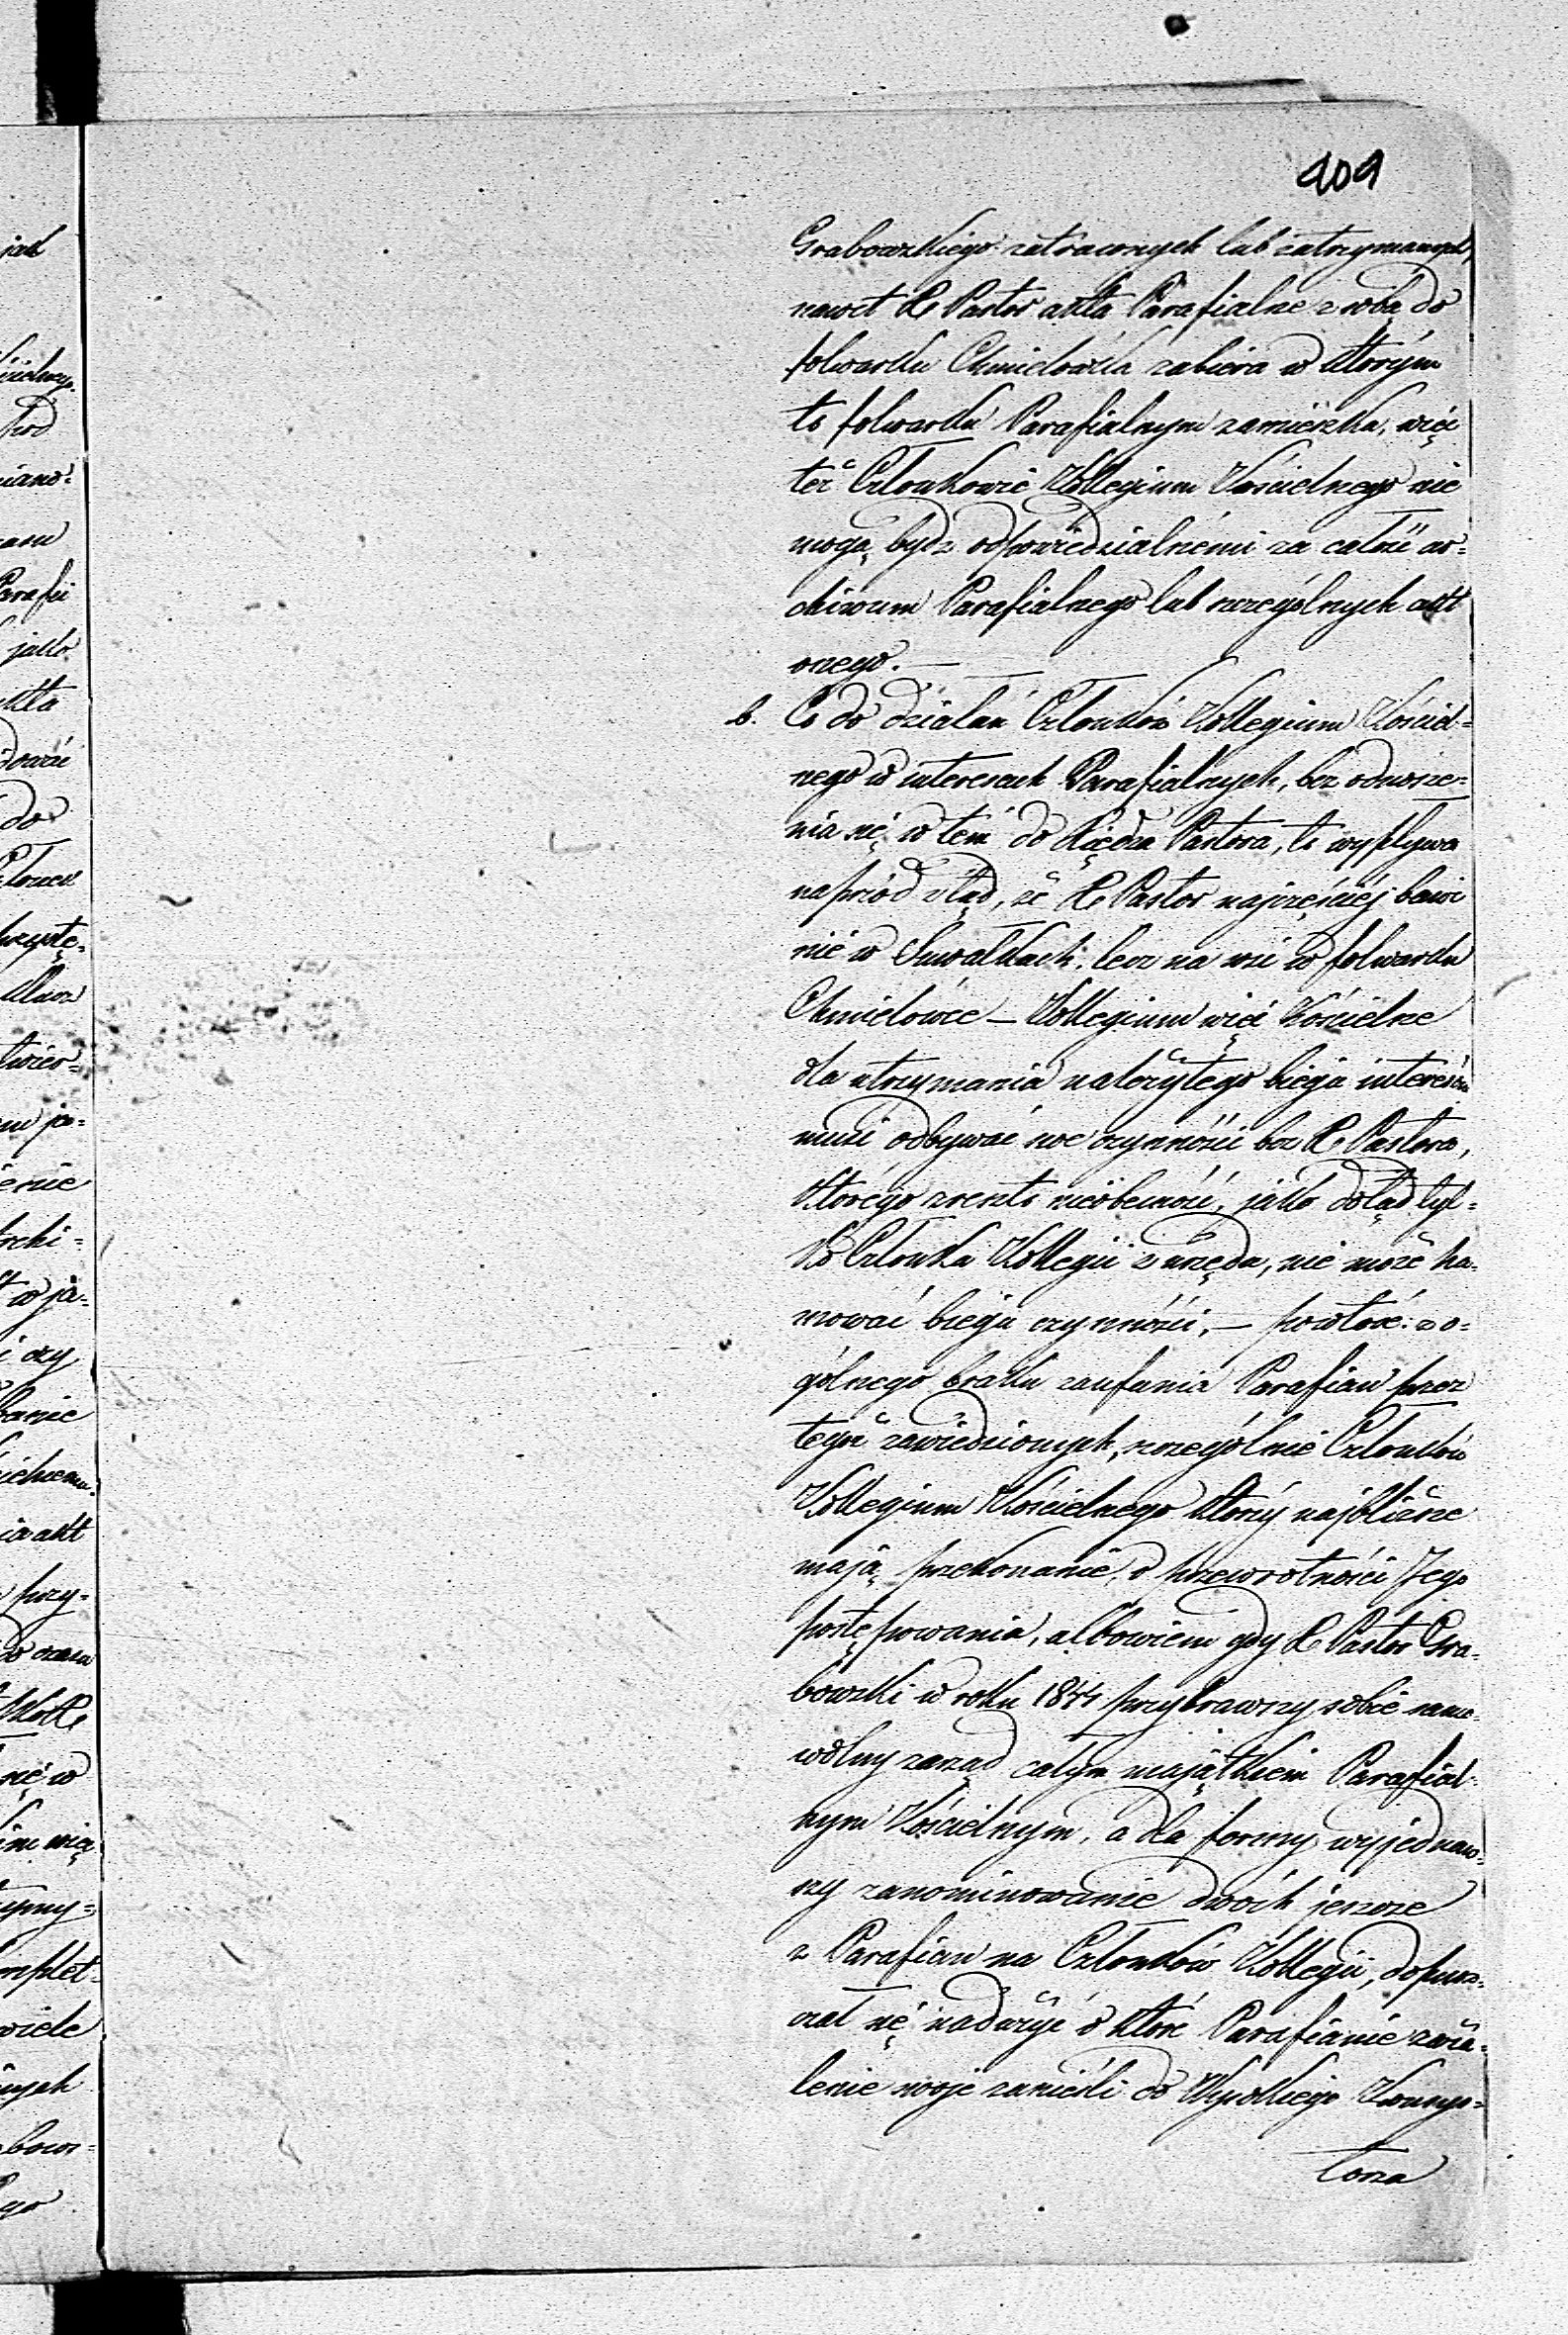 409
Grabowskiego zatraconych lub zatrzymanych,
nawet X Pastor akta Parafialne z sobą do
folwarku Chmielówka zabiera w którym
to folwarku Parafialnym zamieszka, więc
też Członkowie Kollegium Kościelnego nie
mogą bydz odpowiedzialnémi za całość ar=
chiwum Parafialnego lub szczególnych akt
onego. —
b. Co do działań Członków Kollegium Kościel=
nego w interesach Parafialnych, bez odnosze=
nia się w tem do Księdza Pastora, to wypływa
naprzód ztąd, że X Pastor najczęściéj bawi
nie w Suwałkach, lecz na wsi w folwarku
Chmielówce — Kollegium więc Kościelne
dla utrzymania należytego biegu interesów
musi odbywać swe czynności bez X Pastora,
którego zreszto nieobecność, jako dotąd tyl=
ko Członka Kollegii z urzędu, nie może ha=
mować biegu czynności, — powtóré: z o=
gólnego braku zaufania Parafian przez
tegoż zawiedzionych, szczególnie Członków
Kollegium Kościelnego którzy najbliższe
mają przekonanie, o przewrotności Jego
postępowania, albowiem gdy X Pastor Gra=
bowski w roku 1844 przybrawszy sobie samo=
wolny zarząd całym majątkiem Parafial=
nym Kościelnym, a dla formy wyjednaw=
szy zanominowanie dwóch jeszcze
z Parafian na Członków Kollegii, dopusz=
czał się nadużyć o które Parafianie zaża=
lenie swoje zanieśli do Wysokiego Konsys=
torza